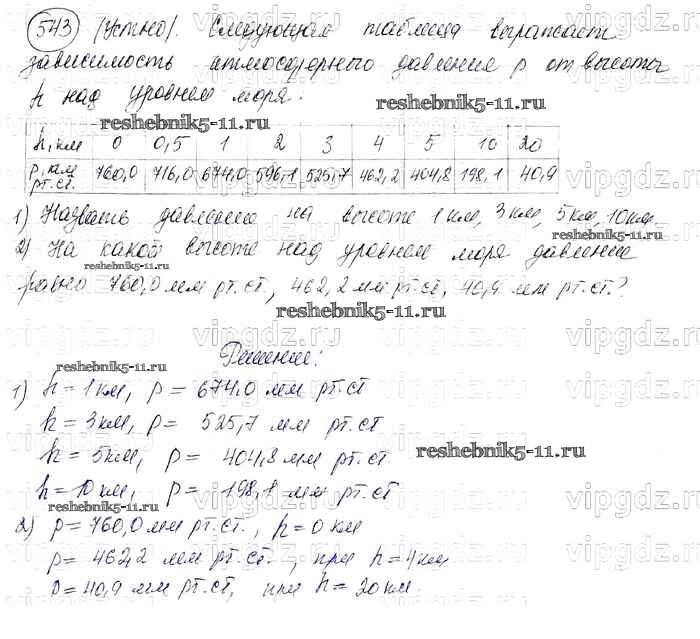 543 (устно). Следующая таблица выражает
зависимость атмосферного давление p от высоты
h над уровнем моря.
reshebnik5-11.ru
h, км 0 0,5 1 2 3 4 5 10 20
p, км рт.ст. 760,0 716,0 674,0 596,1 525,7 462,2 404,8 198,1 40,9
1) Назвать давление на высоте 1 км, 3 км, 5 км, 10 км.
2) На какой высоте над уровнем моря давление
reshebnik5-11.ru
равно 760,0 мм рт.ст, 462,2 мм рт.ст, 40,9 мм рт.ст.?
reshebnik5-11.ru
Решение:
reshebnik5-11.ru
1) h = 1 км, p = 674,0 мм рт.ст
h = 3 км, p = 525,7 мм рт.ст
h = 5 км, p = 404,8 мм рт.ст.
reshebnik5-11.ru
h = 10 км, p = 198,1 мм рт.ст
reshebnik5-11.ru
2) p = 760,0 мм рт.ст., h = 0 км
p = 462,2 мм рт.ст., при h = 4 км
p = 40,9 мм рт.ст, при h = 20 км.
vipgdz.ru